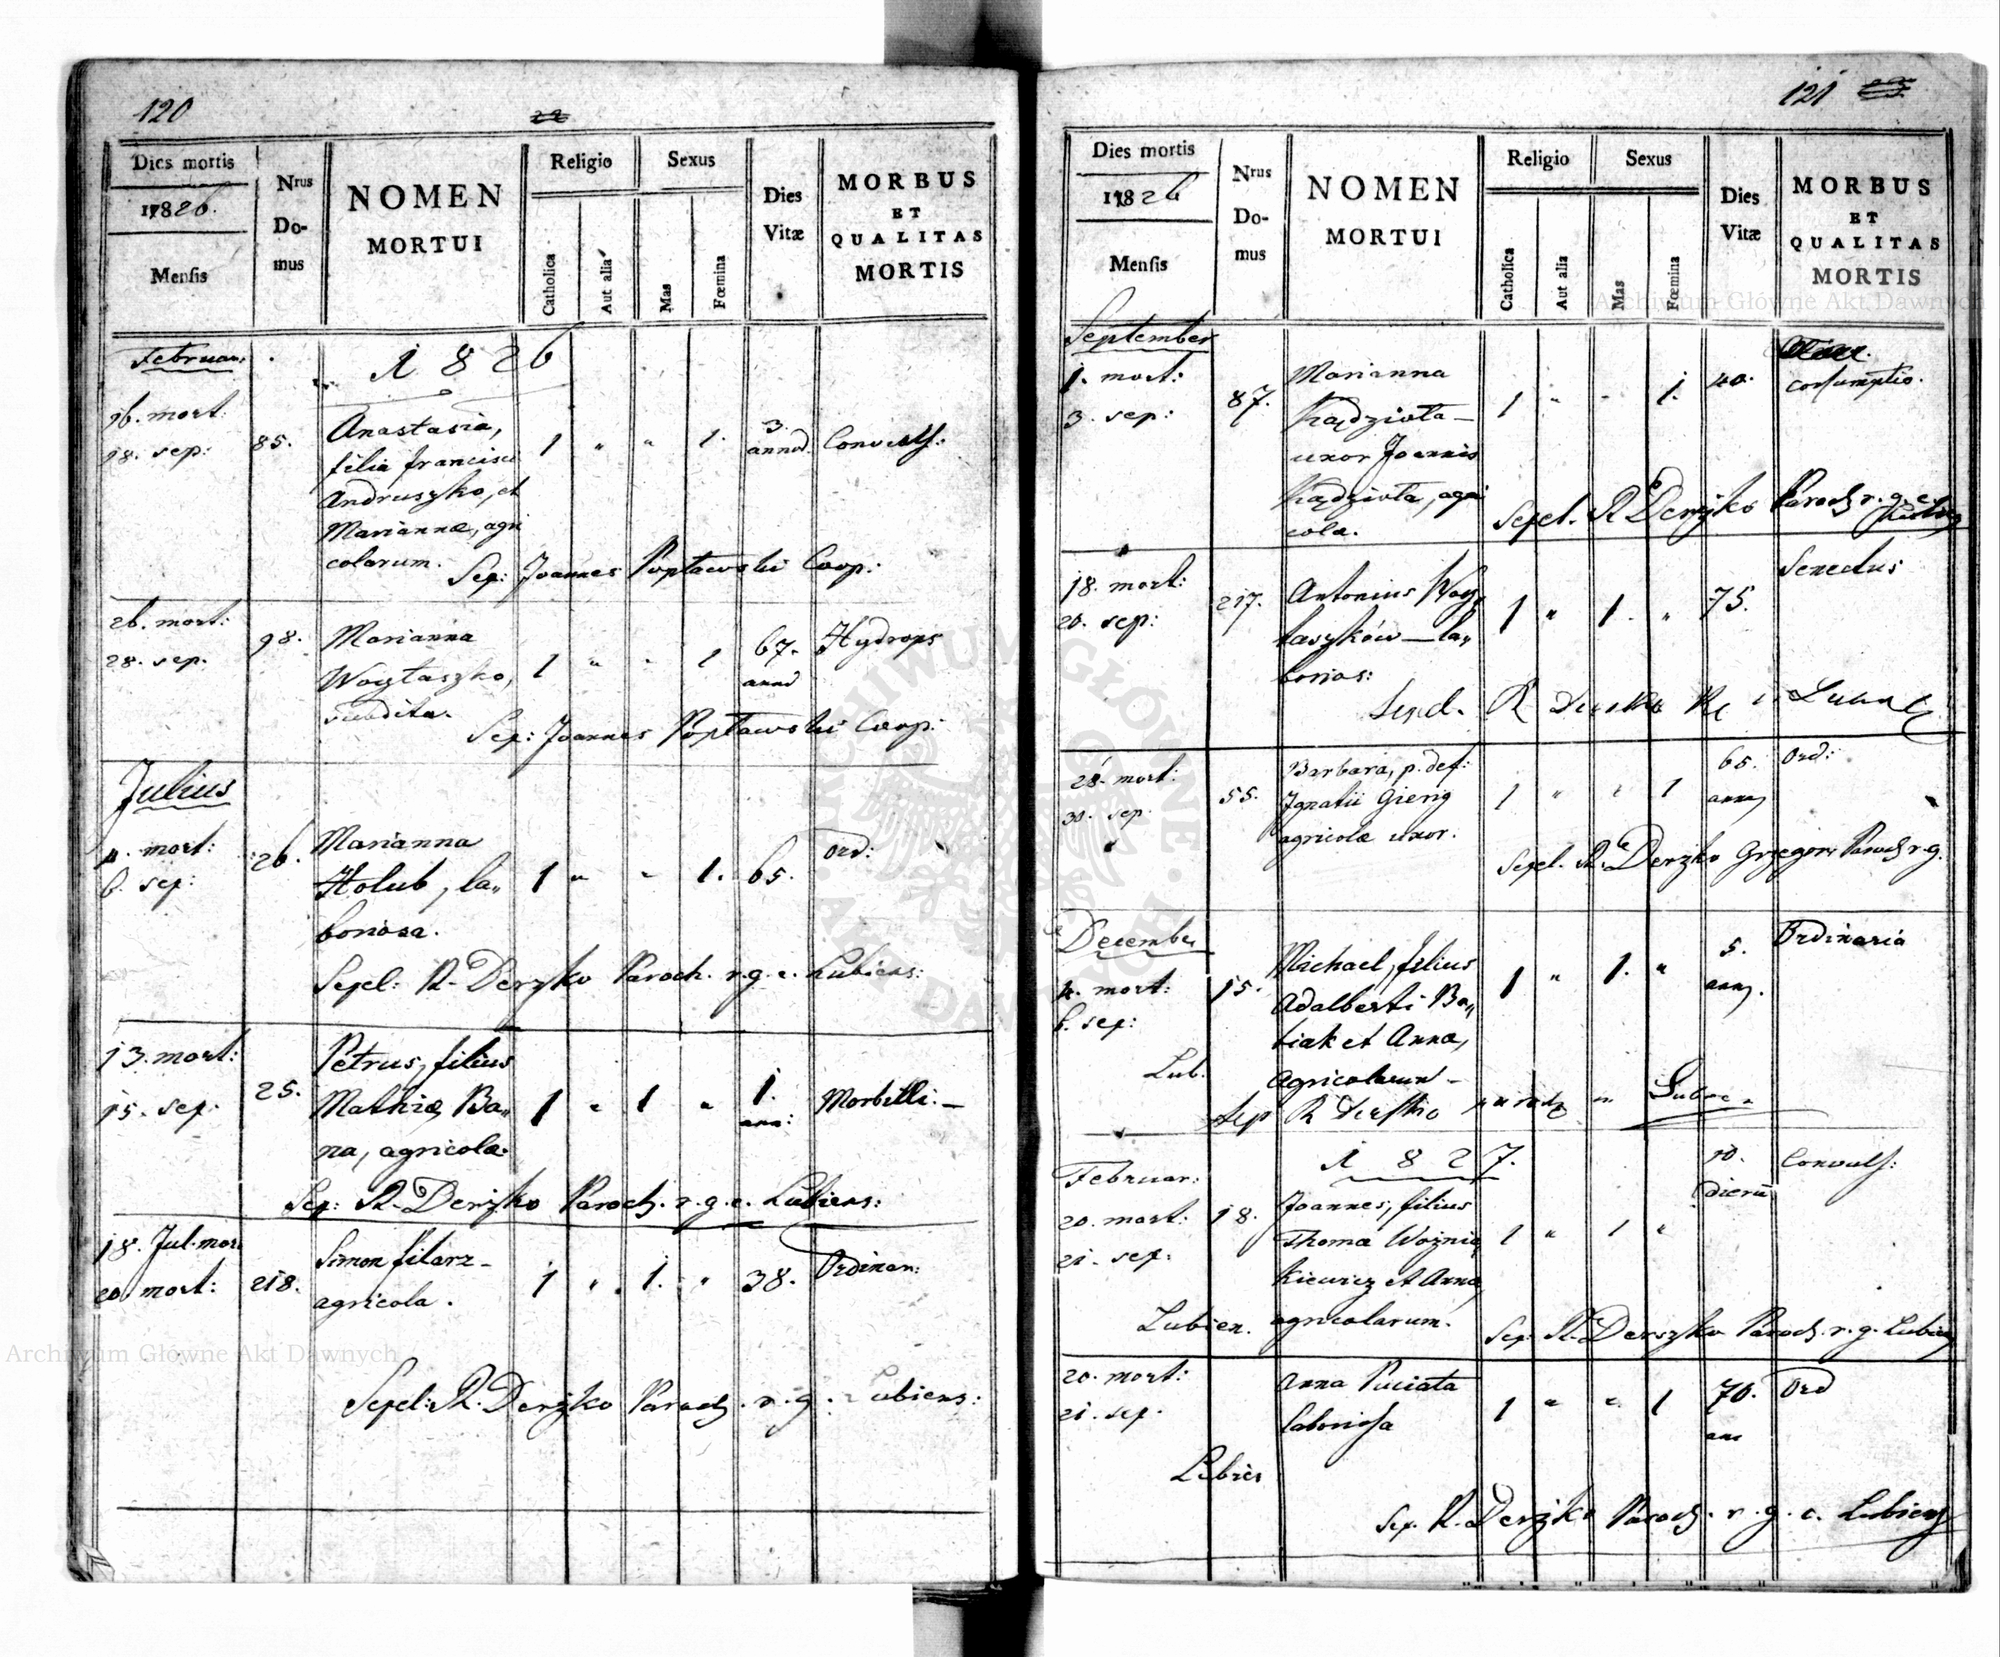 120
Dies mortis
1826.
Mensis
Nrus
Do-
mus
NOMEN
MORTUI
Religio
Catholica
Aut alia
Sexus
Mas
Fœmina
Dies
Vitæ
MORBUS
ET
QUALITAS
MORTIS
Februar:
1826
16. mort:
18. sep:
85.
Anastasia,
filia Francisci
Andruszko, et
Mariannæ, agri
colarum.
1 " " 1.
3.
annor.
Convuls:
Sep: Joannes Popławski Coop:
26. mort:
28. sep.
98.
Marianna
Woytaszko,
subdita.
1 " " 1
67.
annor
Hydrops
Sep: Joannes Popławski Coop:
Julius
4. mort:
6. sep:
26.
Marianna
Holub, la„
boriosa.
1 " " 1. 65.
Ord:
Sepel: R. Derzko Paroch. r. g. c. Lubiens:
13. mort:
15. sep:
25.
Petrus, filius
Mathiæ Ba„
na, agricolæ.
1 " 1 "
1.
ann:
Morbilli. —
Sep: R. Derzko Paroch. r. g. c. Lubiens:
18. Jul. mor
20. mort:
218.
Simon filarz -
agricola.
1 " 1. " 38.
Ordinar:
Sepel: R. Derzko Paroch. r. g. Lubiens:
121
Dies mortis
1826
Mensis
Nrus
Do-
mus
NOMEN
MORTUI
Religio
Catholica
Aut alia
Sexus
Mas
Fœmina
Dies
Vitæ
MORBUS
ET
QUALITAS
MORTIS
September
1. mort:
3. sep:
87.
Marianna
Kądzioła —
uxor Joannis
Kądzioła, agri
colæ.
1 " " 1. 40.
consumptio.
Sepel. R. Derzko Paroch r. g. c.
18. mort:
20. sep:
217.
Antonius Woy„
taszków — la„
borios:
1 " 1. " 75.
Senectus
Sepel. R Derzko
28. mort:
30. sep.
55.
Barbara, p. def:
Ignatii Gierig
agricolæ uxor.
1 " " 1
65.
annor
Ord:
Sepel. R. Derzko Grzegorz Paroch r. g.
December
4. mort:
6. sep:
15.
Michael, filius
Adalberti Ba„
tiak et Annæ,
Agricolarum -
1 " 1. "
5.
ann.
Ordinaria
Lub.
Sep R Derzko
1827.
Februar:
20. mort:
21. sep:
18.
Joannes, filius
Thomæ Woznia
kiewicz et Annæ,
agricolarum.
1 " 1 "
10.
dierū
Convuls:
Lubien.
Sep: R. Derszko Paroch. r. g. Lubien
20. mort:
21. sep.
Anna Puciata
laboriosa
1 " " 1
70.
ann
Ord
Lubien
Sep. R. Derzko Paroch. r. g. c. Lubiens
Archiwum Główne Akt Dawnych
Archiwum Główne Akt Dawnych
ARCHIWUM GŁÓWNE · AKT DAWNYCH ·